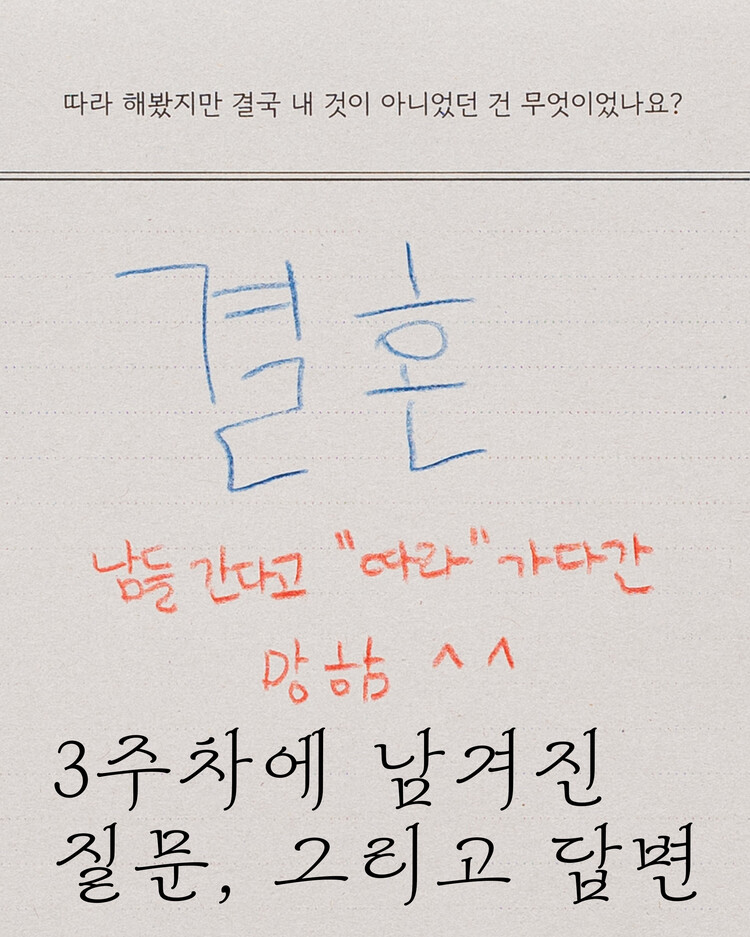 따라 해봤지만 결국 내 것이 아니었던 건 무엇이었나요?
결혼
남들 간다고 "따라" 가다간
망함 ^^
3주차에 남겨진
질문, 그리고 답변